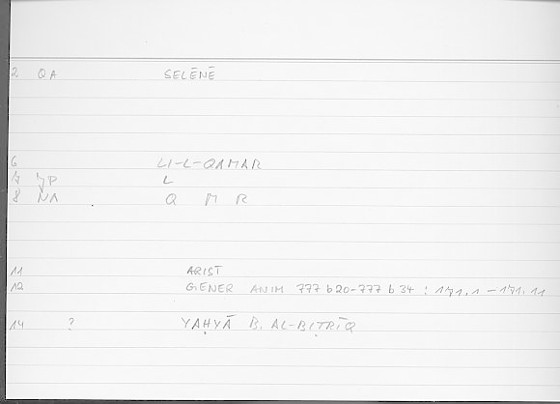 2 QA SELĒNĒ
6 LI-L-QAMAR
7 L
8 NA Q M R
11 ARIST
12 GENER ANIM 777 b 20-777 b 34 : 171.1-171.11
14 ? YAḤYĀ B. AL-BIṬRĪQ